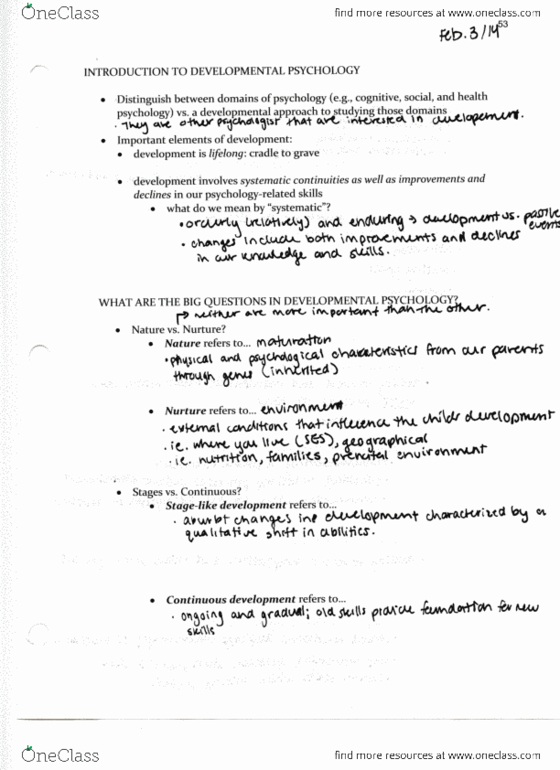 OneClass
find more resources at www.oneclass.com
53
Feb. 3/14
INTRODUCTION TO DEVELOPMENTAL PSYCHOLOGY
• Distinguish between domains of psychology (e.g., cognitive, social, and health
psychology) vs. a developmental approach to studying those domains
· They are other psychologist that are interested in development.
• Important elements of development:
• development is lifelong: cradle to grave
• development involves systematic continuities as well as improvements and
declines in our psychology-related skills
• what do we mean by "systematic"?
• orderly (relatively) and enduring → development vs. passive
events
• changes include both improvements and declines
in our knowledge and skills.
WHAT ARE THE BIG QUESTIONS IN DEVELOPMENTAL PSYCHOLOGY?
↳ neither are more important than the other.
• Nature vs. Nurture?
• Nature refers to... maturation
• physical and psychological characteristics from our parents
through genes (inherited)
• Nurture refers to... environment
· external conditions that influence the childs development
· ie. where you live (SES), geographical
· ie. nutrition, families, prenatal environment
• Stages vs. Continuous?
• Stage-like development refers to...
· changes in development characterized by a
qualitative shift in abilities.
• Continuous development refers to...
· ongoing and gradual; old skills provide foundation for new
skills
OneClass
find more resources at www.oneclass.com